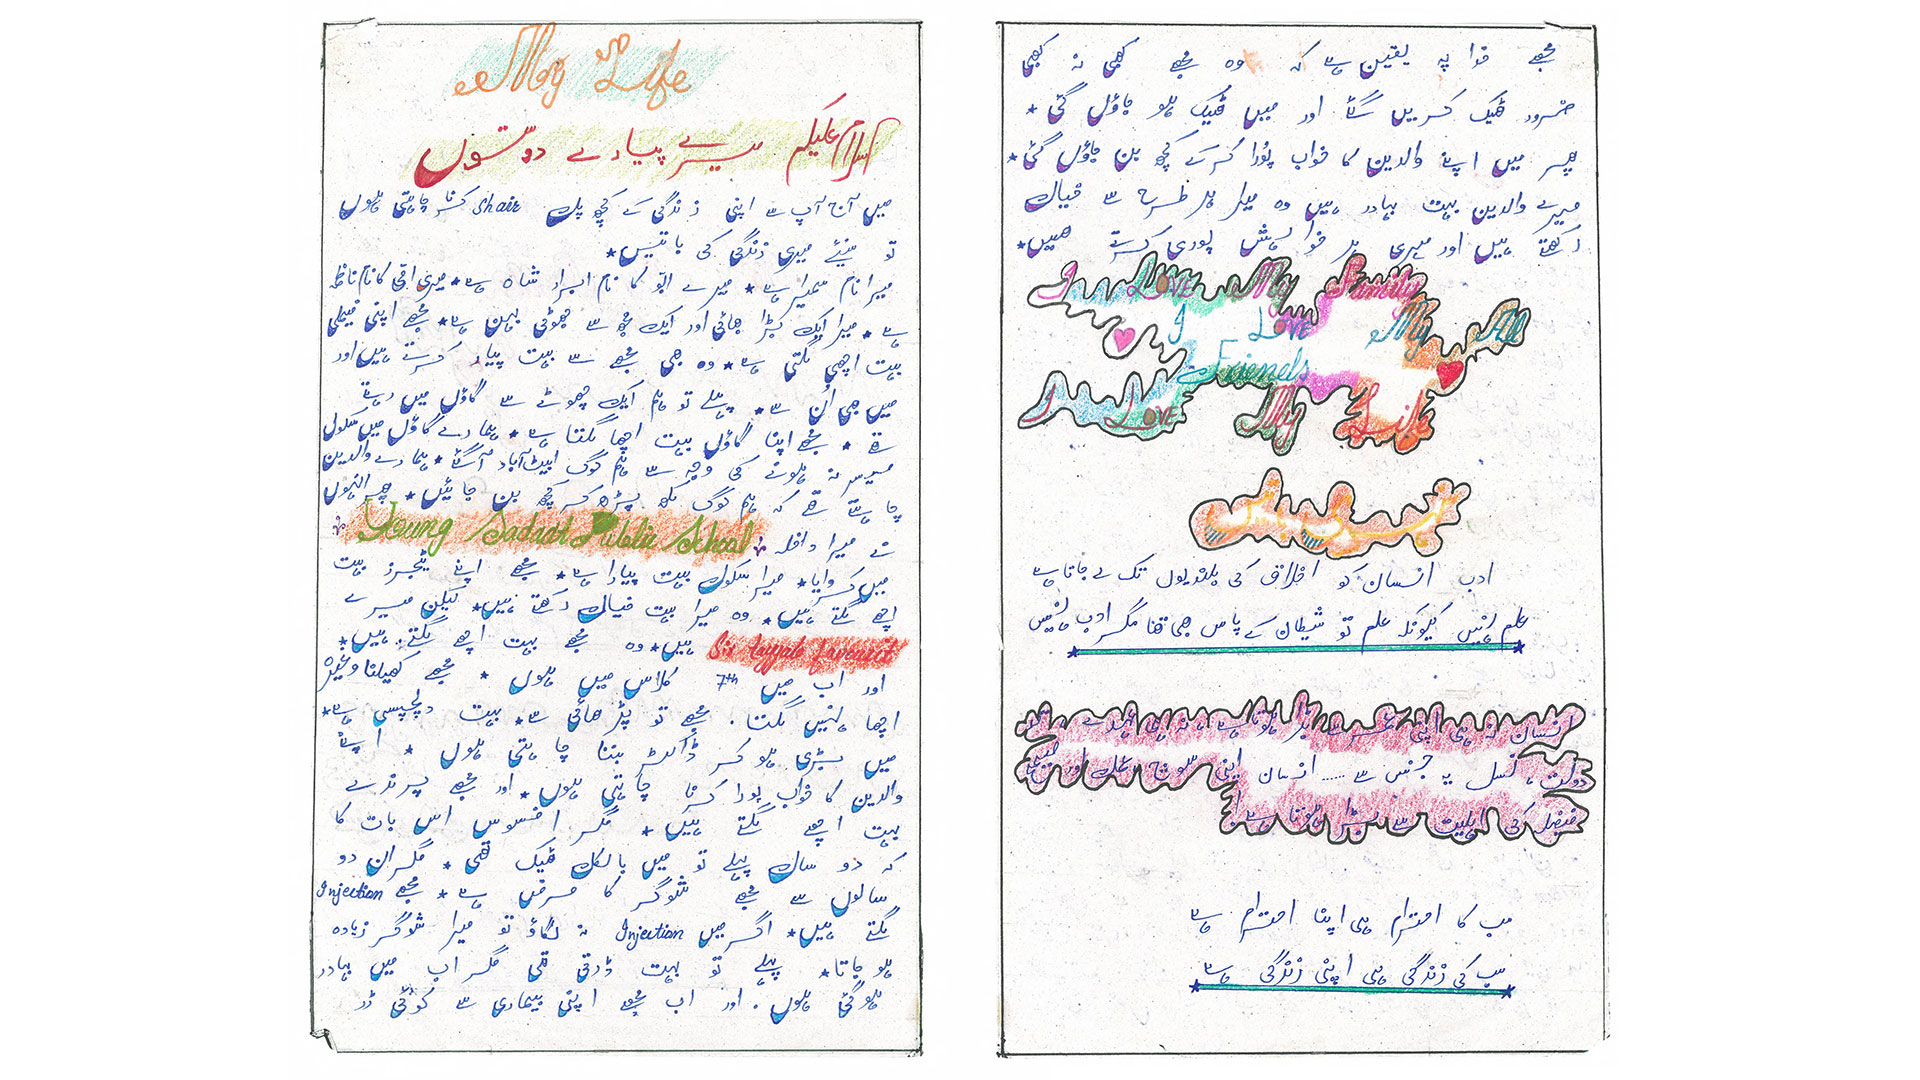 My Life
السلام علیکم میرے پیارے دوستوں
میں آج آپ سے اپنی زندگی کے کچھ پل Shair کرنا چاہتی ہوں
تو سنیئے میری زندگی کی باتیں*
میرا نام سمیرا ہے* میرے ابو کا نام ابرار شاہ ہے* میری امی کا نام
ہے* میرا ایک بڑا بھائی اور ایک مجھ سے چھوٹی بہن ہے* مجھے اپنی فیملی
بہت اچھی لگتی ہے* وہ بھی مجھ سے بہت پیار کرتے ہیں اور
میں بھی اُن سے* پہلے تو ہم ایک چھوٹے سے گاؤں میں رہتے
تھے* مجھے اپنا گاؤں بہت اچھا لگتا ہے* ہمارے گاؤں میں سکول
میسر نہ ہونے کی وجہ سے ہم لوگ ایبٹ آباد آگئے* ہمارے والدین
چاہتے تھے کہ ہم لوگ لکھ پڑھ کر کچھ بن جائیں* پھر انہوں
نے میرا داخلہ * Young Sadaat Public School *
میں کروایا* میرا سکول بہت پیارا ہے* مجھے اپنے ٹیچرز بہت
اچھے لگتے ہیں* وہ میرا بہت خیال رکھتے ہیں* لیکن میرے
Sir tayyab favourit ہیں* وہ مجھے بہت اچھے لگتے ہیں*
اور اب میں 7th کلاس میں ہوں* مجھے کھیلنا وغیرہ
اچھا نہیں لگتا. مجھے تو پڑھائی سے بہت دلچسپی ہے*
میں بڑی ہو کر ڈاکٹر بننا چاہتی ہوں* اپنے
والدین کا خواب پورا کرنا چاہتی ہوں* اور مجھے پرندے
بہت اچھے لگتے ہیں* مگر افسوس اس بات کا
کہ دو سال پہلے تو میں بالکل ٹھیک تھی* مگر ان دو
سالوں سے مجھے شوگر کا مرض ہے* مجھے Injection
لگتے ہیں* اگر میں Injection نہ لگاؤ تو میرا شوگر زیادہ
ہو جاتا* پہلے تو بہت ڈرتی تھی مگر اب میں بہادر
ہو گئی ہوں. اور اب مجھے اپنی بیماری سے کوئی ڈر
مجھے خدا پہ یقین ہے کہ وہ مجھے کبھی نہ کبھی
ضرور ٹھیک کریں گے اور میں ٹھیک ہو جاؤں گی*
پھر میں اپنے والدین کا خواب پُورا کر کے کچھ بن جاؤں گی*
میرے والدین بہت بہادر ہیں وہ میرا ہر طرح سے خیال
رکھتے ہیں اور میری ہر خواہش پوری کرتے ہیں*
I Love My Family
I Love My All
Friends
I Love My Life
ادب انسان کو اخلاق کی بلندیوں تک لے جاتا ہے
علم نہیں کیونکہ علم تو شیطان کے پاس بھی تھا مگر ادب نہیں
انسان نہ ہی اپنی عمر سے بڑا ہوتا ہے، نہ ہی عہدے،
دولت، نسل یہ جنس سے ..... انسان اپنی سوچ، عمل اور صحیح
فیصلہ کی اہلیت سے بڑا ہوتا ہے!
سب کا احترام ہی اپنا احترام ہے
سب کی زندگی ہی اپنی زندگی ہے